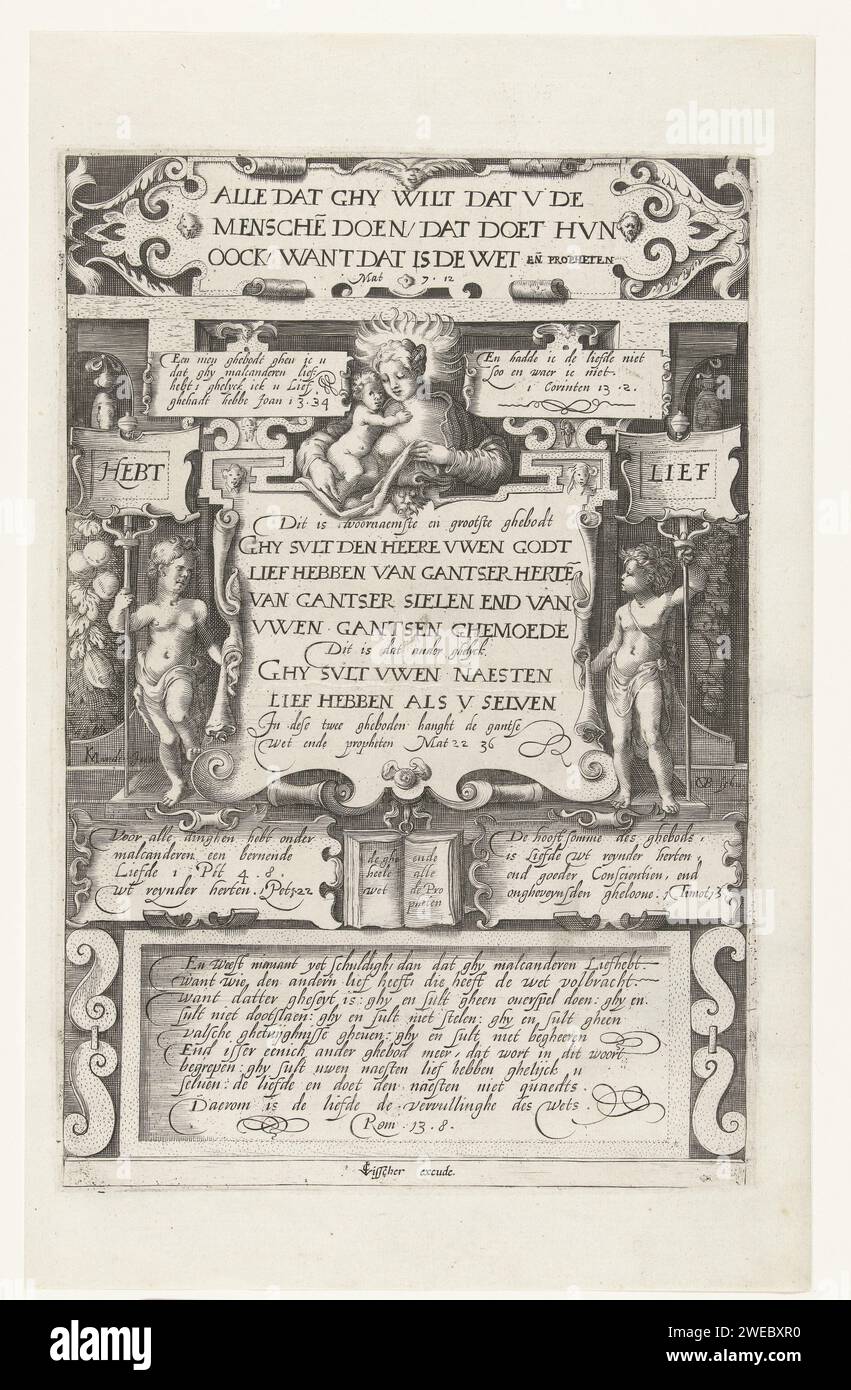 ALLE DAT GHY WILT DAT V DE
MENSCHĒ DOEN/ DAT DOET HVN
OOCK/ WANT DAT IS DE WET EÑ PROPHETEN
Mat 7. 12
Een nieu ghebodt gheu ic u
dat ghy malcanderen lief
hebt: ghelyck ick u Lief
ghehadt hebbe Joan 13.34
En hadde ic de liefde niet
soo en waer ic niet.
1 Corinten 13.2.
HEBT
LIEF
Dit is tvoornaemste en grootste ghebodt
GHY SVLT DEN HEERE VWEN GODT
LIEF HEBBEN VAN GANTSER HERTĒ
VAN GANTSER SIELEN END VAN
VWEN GANTSEN GHEMOEDE
Dit is dat ander ghelyck.
GHY SVLT VWEN NAESTEN
LIEF HEBBEN ALS V SELVEN
In dese twee gheboden hanght de gantse
Wet ende propheten Mat 22 36
Voor alle dinghen hebt onder
malcanderen een bernende
Liefde 1 Pet 4.8.
wt reynder herten. 1 Pet 1.22
de ghe
heele
wet
ende
alle
de Pro
pheten
De hooft somme des ghebods,
is Liefde wt reynder herten,
end goeder Conscientien, end
ongheveynsden gheloove. 1 Timot 1.5
En weest niemant yet schuldigh dan dat ghy malcanderen Liefhebt.
want wie den andern lief heeft, die heeft de wet volbracht.
want datter gheseyt is: ghy en sult gheen overspel doen: ghy en
sult niet dootslaen: ghy en sult niet stelen: ghy en sult gheen
valsche ghetuyghnisse gheuen: ghy en sult niet begheeren
End isser eenich ander ghebod meer, dat wort in dit woort
begrepen: ghy sult uwen naesten lief hebben ghelijck u
seluen: de liefde en doet den naesten niet quaedts.
Daerom is de liefde de vervullinghe des Wets.
Rom. 13.8.
CVisscher excude.
alamy
Image ID: 2WEBXR0
www.alamy.com